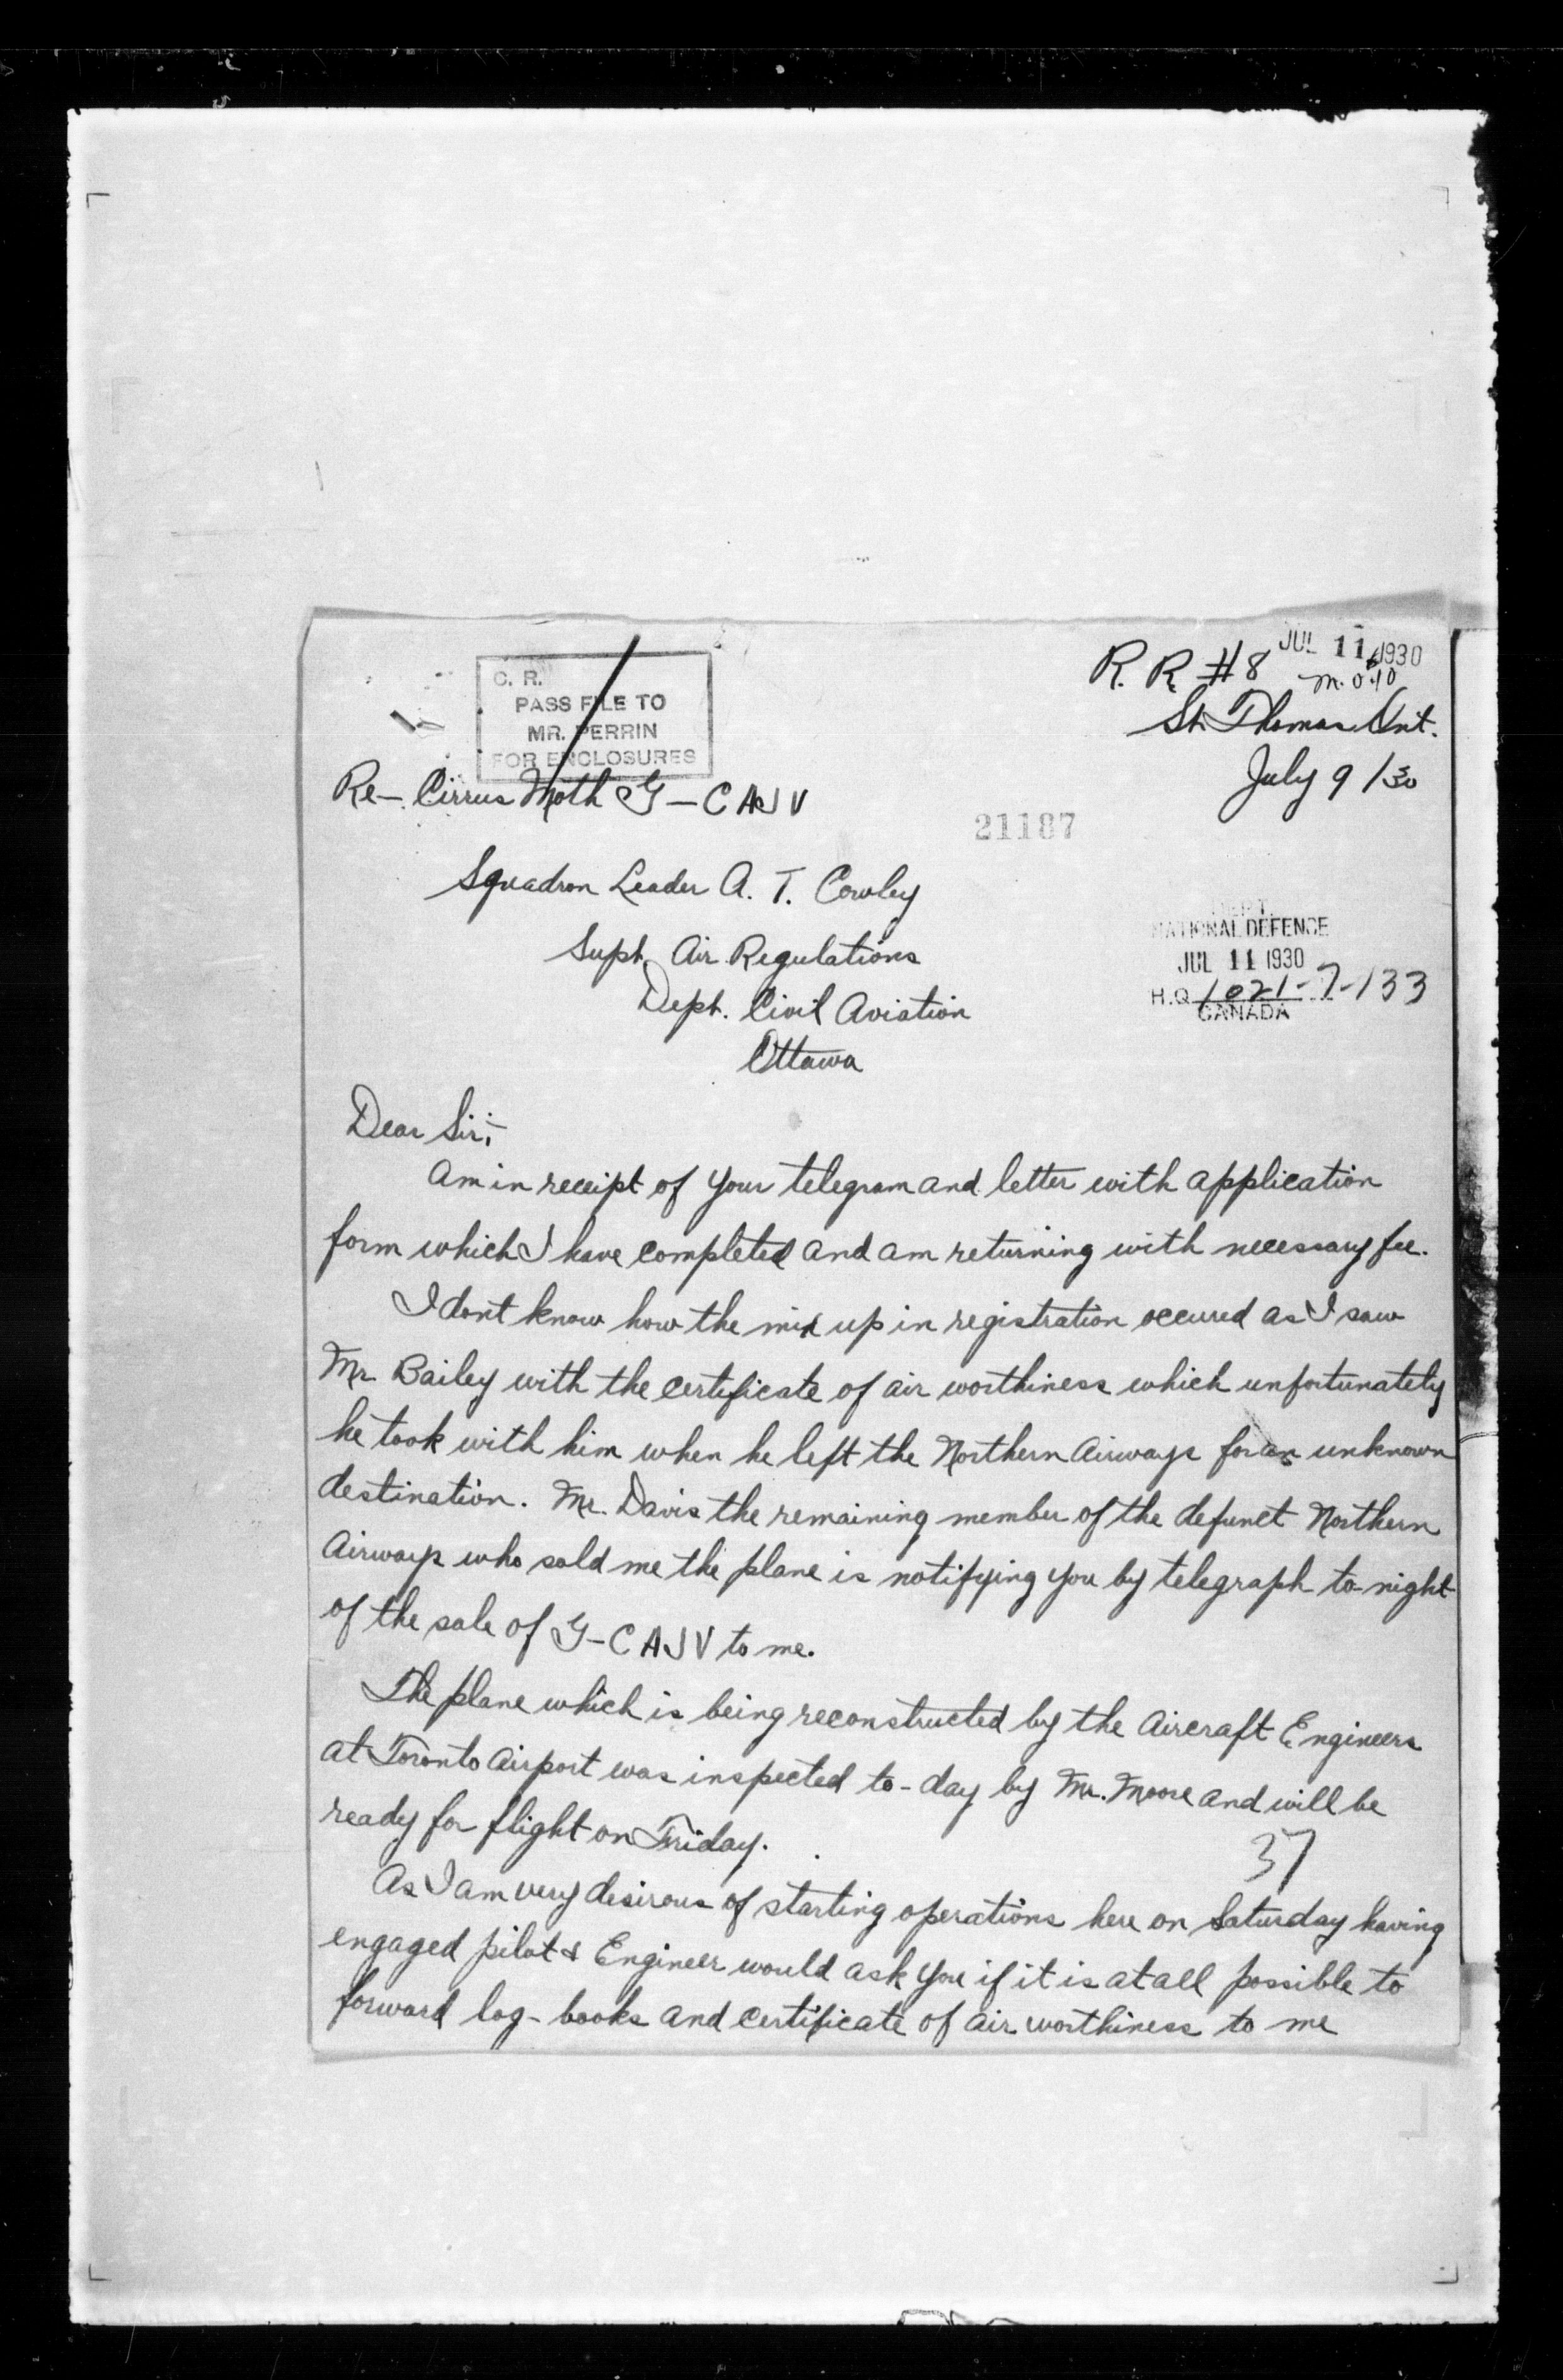 JUL 11 1930
R. R. #8
C. R.
PASS FILE TO
MR. PERRIN
FOR ENCLOSURES
St. Thomas Ont.
July 9 / 30
Re - Cirrus Moth G - CAJV
21187
Squadron Leader A. T. Cowley
Supt. Air Regulations
Dept. Civil Aviation
Ottawa
DEPT.
NATIONAL DEFENCE
JUL 11 1930
H.Q. 1021-7-133
CANADA
Dear Sir;-
Am in receipt of your telegram and letter with application
form which I have completed and am returning with necessary fee.
I dont know how the mix up in registration occured as I saw
Mr. Bailey with the certificate of air worthiness which unfortunately
he took with him when he left the Northern Airways for an unknown
destination. Mr. Davis the remaining member of the defunct Northern
Airways who sold me the plane is notifying you by telegraph to-night
of the sale of G-CAJV to me.
The plane which is being reconstructed by the Aircraft Engineers
at Toronto Airport was inspected to-day by Mr. Moore and will be
ready for flight on Friday.
37
As I am very desirous of starting operations here on Saturday having
engaged pilot & Engineer would ask you if it is at all possible to
forward log-books and certificate of air worthiness to me